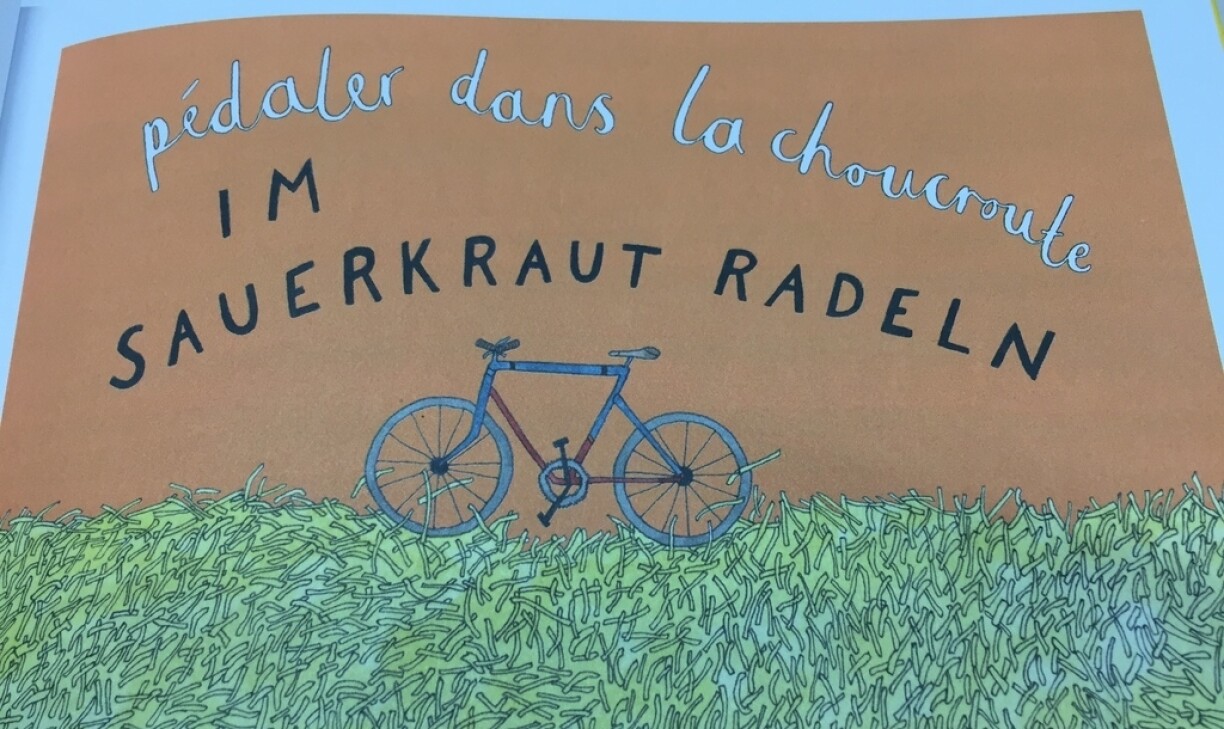 pédaler dans la choucroute
IM
SAUERKRAUT RADELN